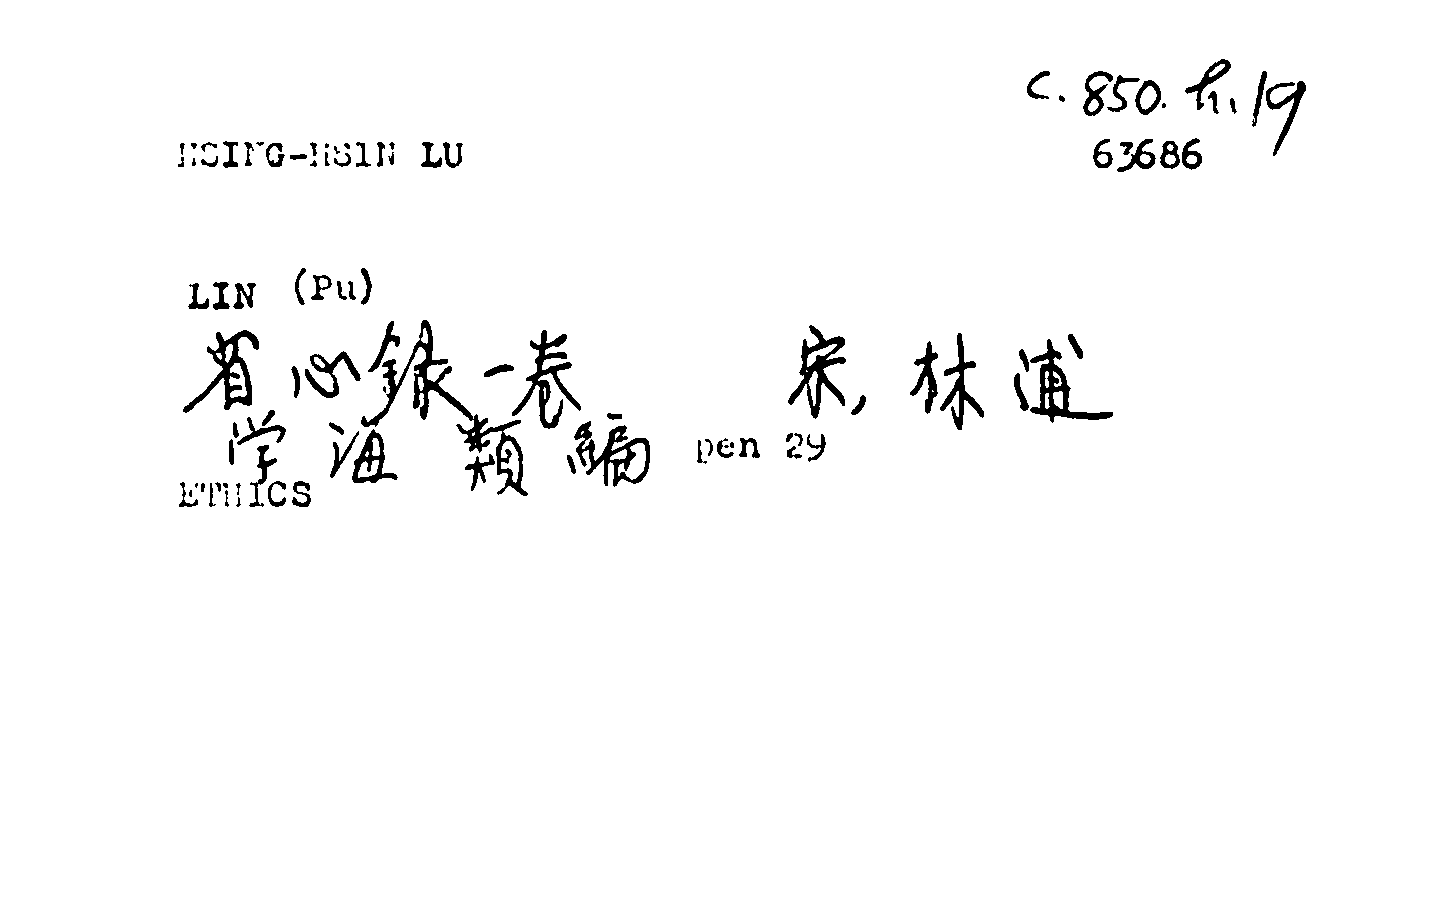 C. 850. h. 19
63686
HSING-HSIN LU
LIN (Pu)
省心録一卷 宋, 林逋
学海類編 pen 29
ETHICS